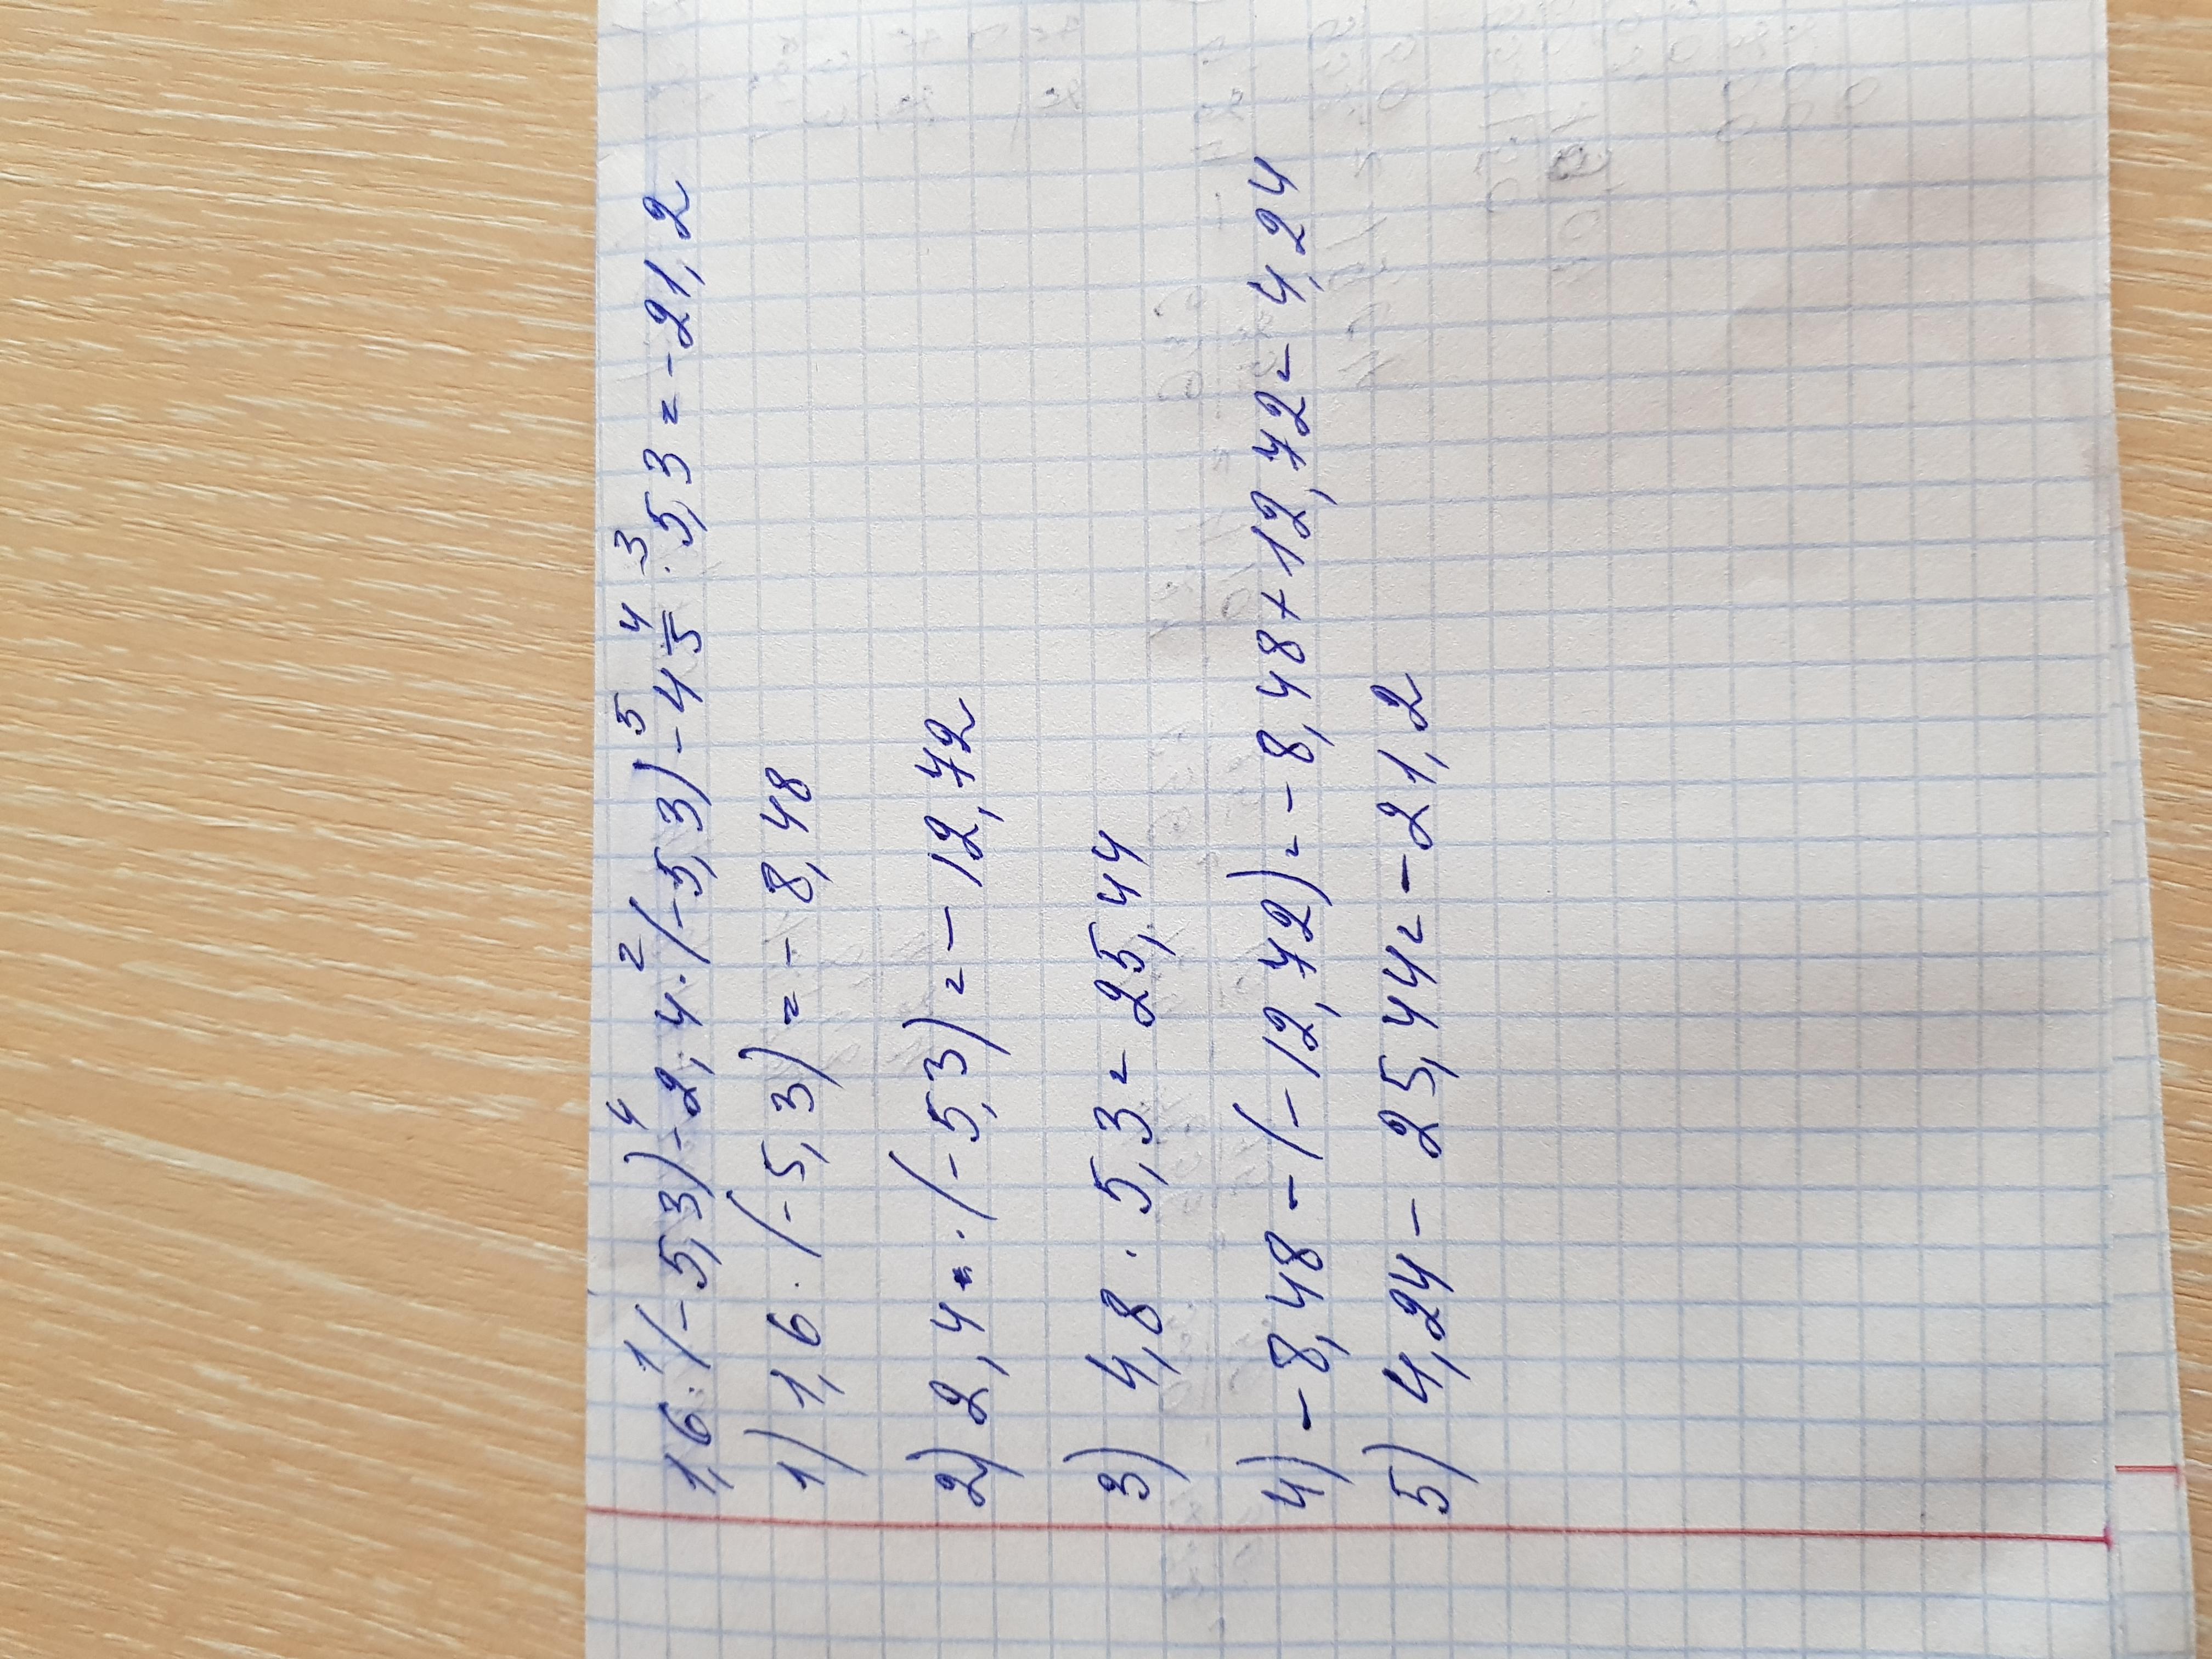 1,6·(-5,3)-2,4·(-5,3)-4 4/5·5,3=-21,2
1) 1,6·(-5,3)=-8,48
2) 2,4·(-5,3)=-12,72
3) 4,8·5,3=25,44
4) -8,48-(-12,72)=-8,48+12,72=4,24
5) 4,24-25,44=-21,2